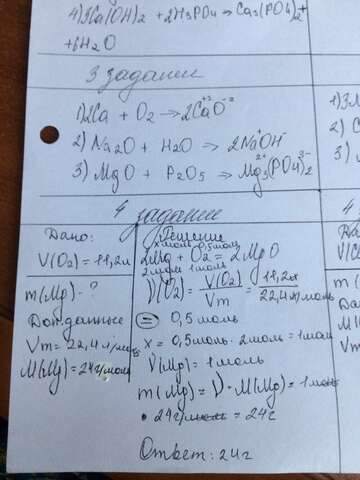 4) 3Ca(OH)2 + 2H3PO4 → Ca3(PO4)2 +
+ 6H2O
3 задание
1) 2Ca + O2 → 2Ca⁺²O⁻²
2) Na2O + H2O → 2Na⁺OH⁻
3) MgO + P2O5 → Mg3²⁺(PO4)2³⁻
4 задание
Дано:
V(O2) = 11,2л
m(Mg) - ?
Доп.данные
Vm = 22,4 л/моль
M(Mg) = 24г/моль
Решение
x моль 0,5моль
2Mg + O2 = 2MgO
2моль 1моль
ν(O2) = V(O2)/Vm = 11,2л/22,4 л/моль
= 0,5 моль
x = 0,5моль · 2моль = 1моль
ν(Mg) = 1моль
m(Mg) = ν · M(Mg) = 1моль
· 24г/моль = 24г
Ответ: 24г